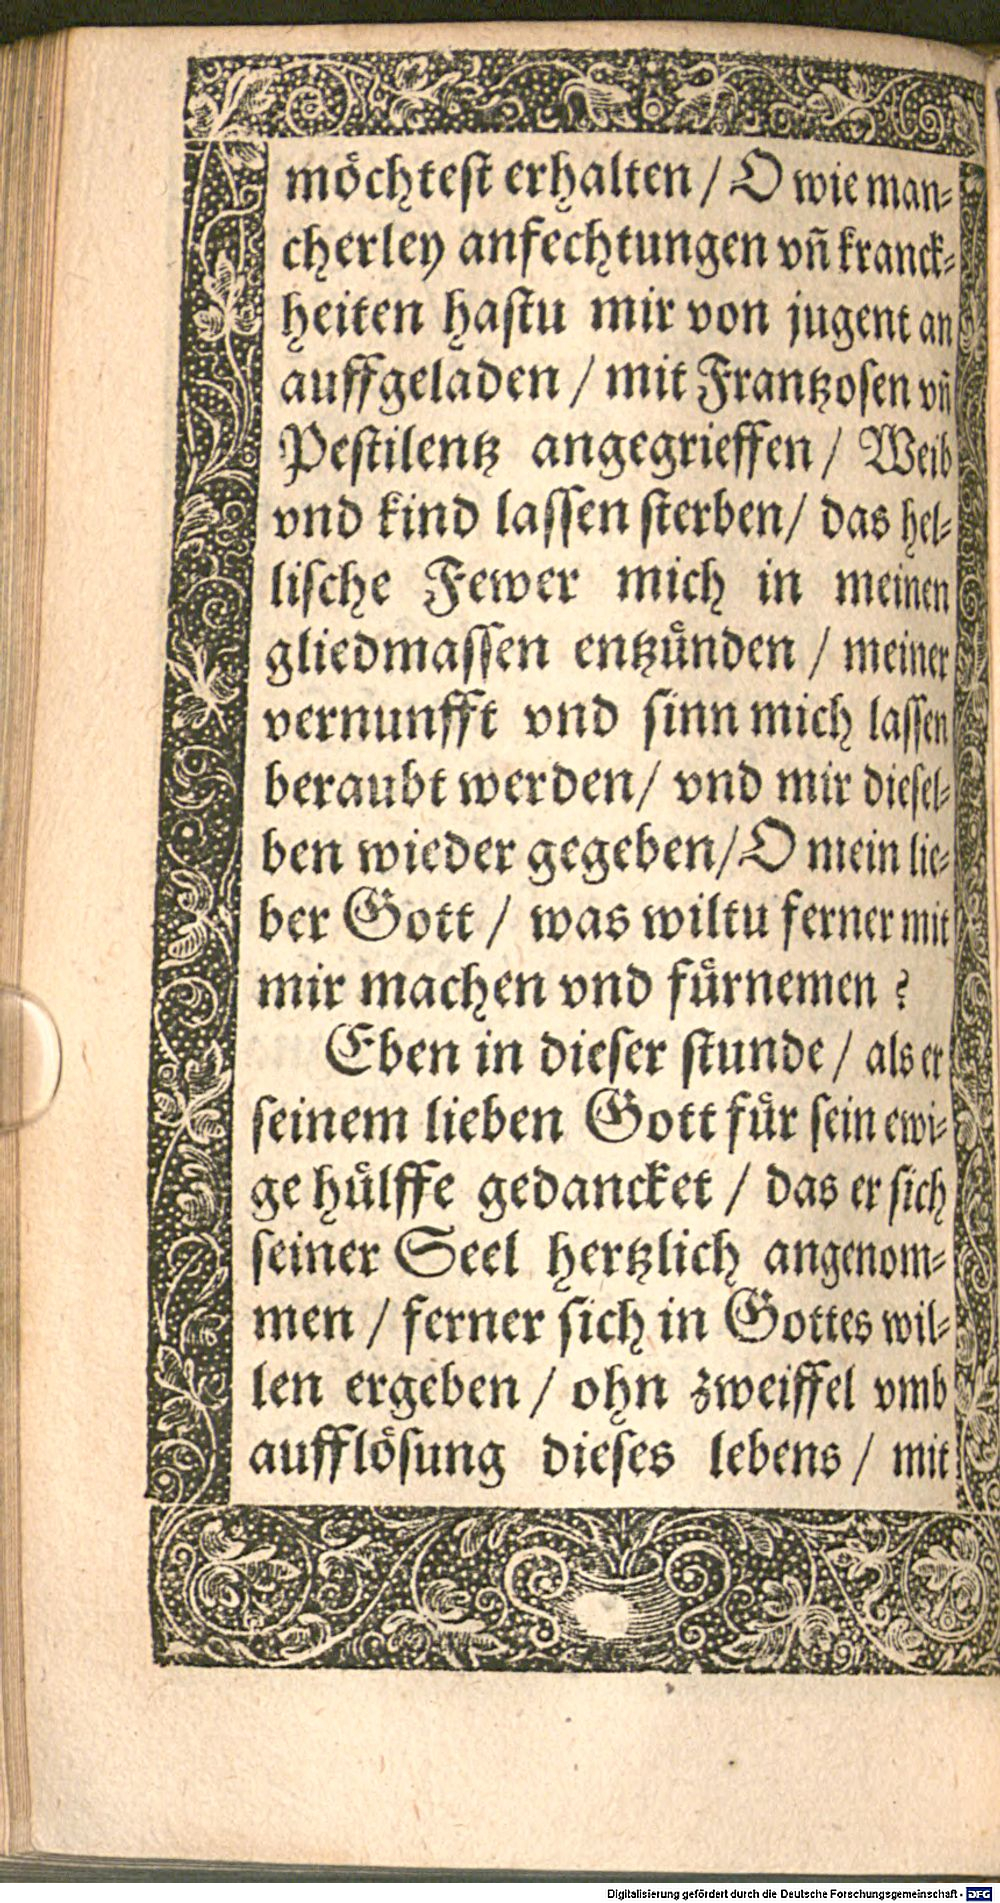 möchtest erhalten / O wie man-
cherley anfechtungen vñ kranck-
heiten hastu mir von jugent an
auffgeladen / mit Frantzosen vñ
Pestilentz angegrieffen / Weib
vnd kind lassen sterben / das hel-
lische Fewer mich in meinen
gliedmassen entzünden / meiner
vernunfft vnd sinn mich lassen
beraubt werden / vnd mir diesel-
ben wieder gegeben / O mein lie-
ber Gott / was wiltu ferner mit
mir machen vnd fürnemen ?
Eben in dieser stunde / als er
seinem lieben Gott für sein ewi-
ge hülffe gedancket / das er sich
seiner Seel hertzlich angenom-
men / ferner sich in Gottes wil-
len ergeben / ohn zweiffel vmb
aufflösung dieses lebens / mit
Digitalisierung gefördert durch die Deutsche Forschungsgemeinschaft - DFG